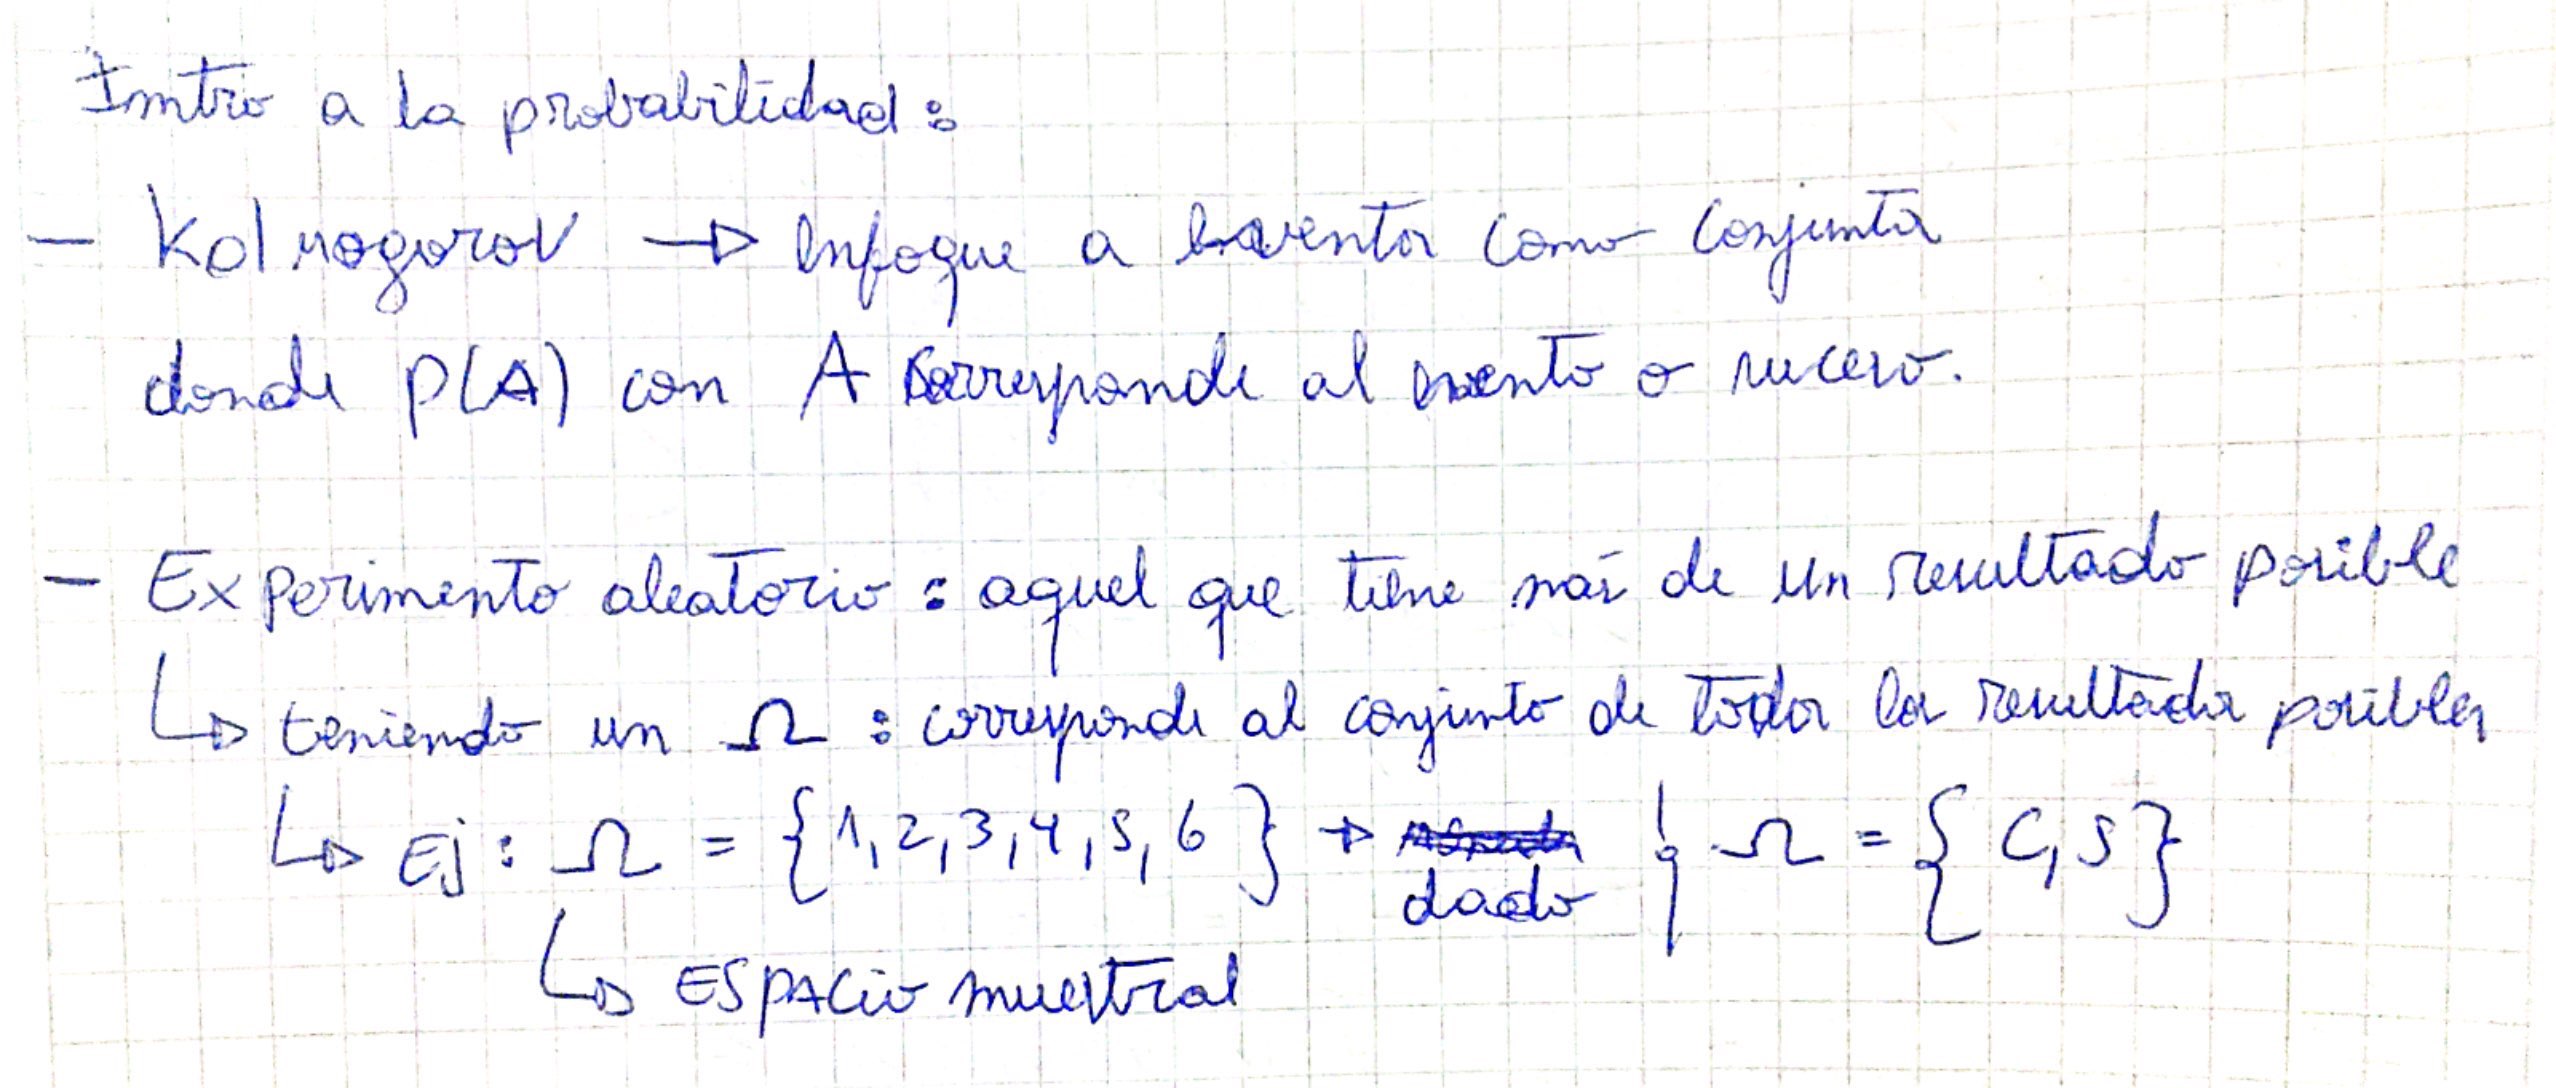 Intro a la probabilidad:
- Kolmogorov → Enfoque a eventos como conjuntos
donde P(A) con A corresponde al evento o suceso.
- Experimento aleatorio: aquel que tiene más de un resultado posible
↳ teniendo un Ω : corresponde al conjunto de todos los resultados posibles
↳ Ej: Ω = {1,2,3,4,5,6} → dado | Ω = {C,S}
↳ Espacio muestral